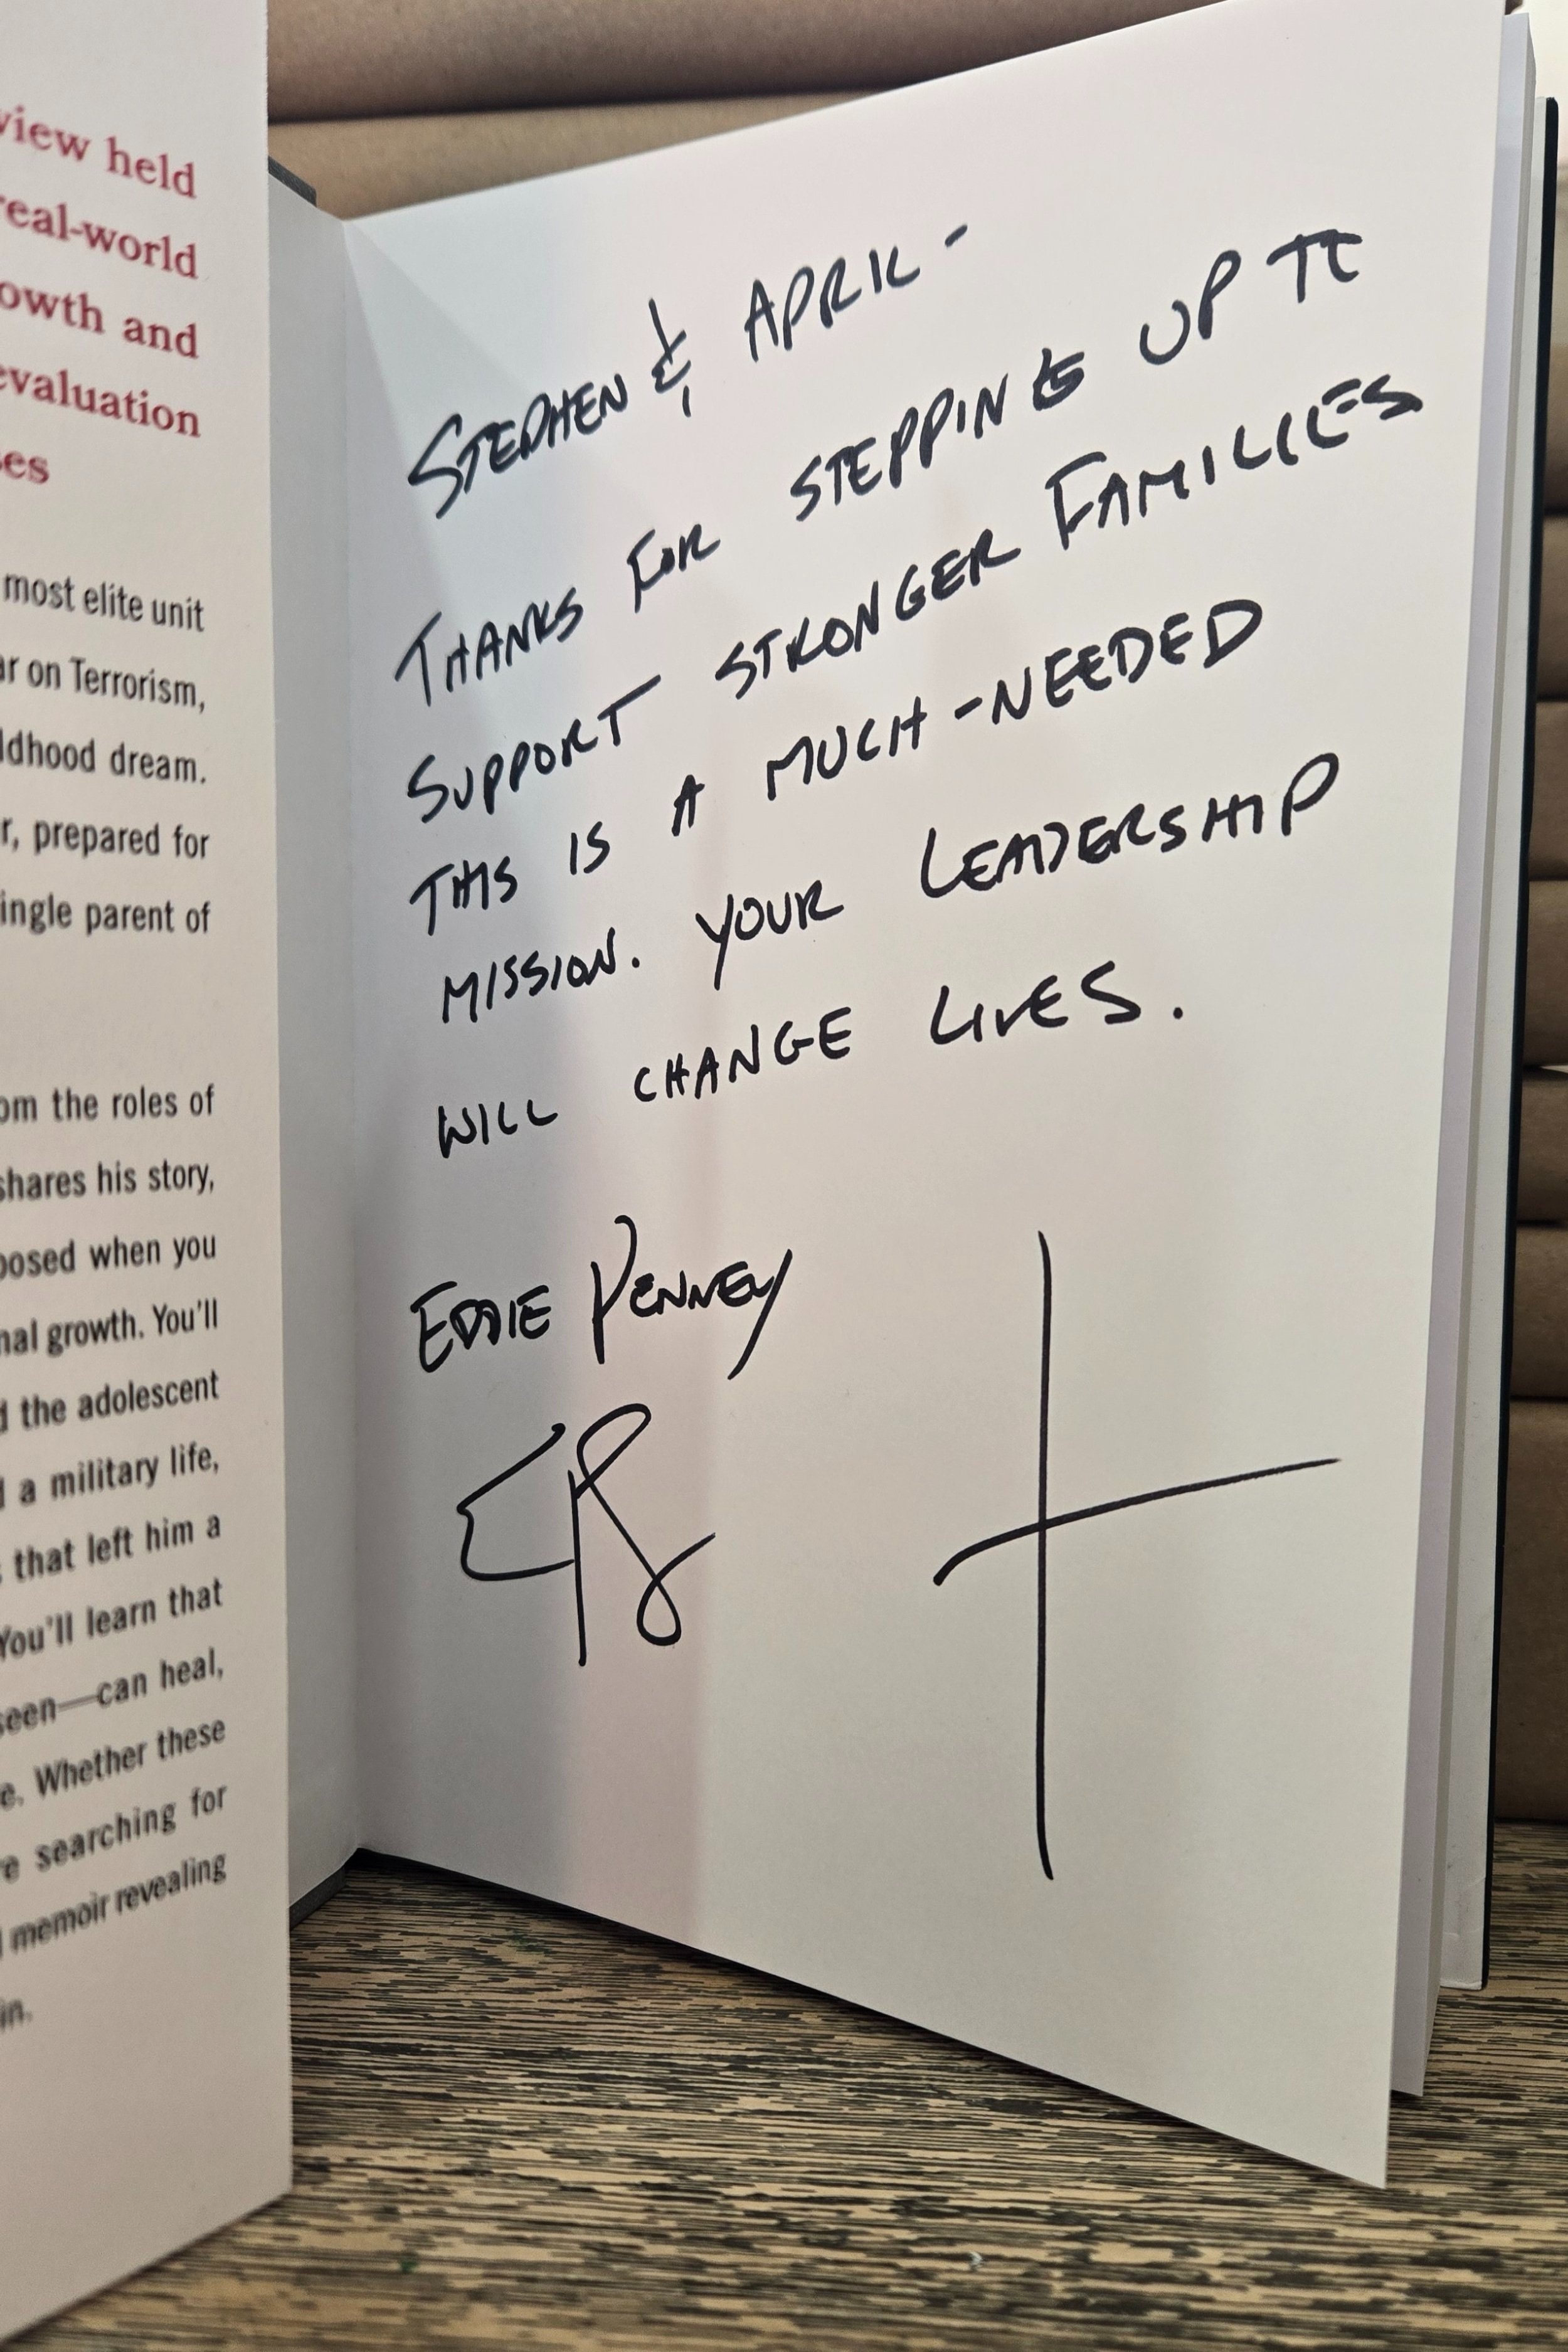 view held
real-world
owth and
evaluation
es
most elite unit
ar on Terrorism,
ldhood dream.
r, prepared for
ingle parent of
om the roles of
shares his story,
posed when you
nal growth. You'll
d the adolescent
d a military life,
that left him a
You'll learn that
seen—can heal,
e. Whether these
re searching for
memoir revealing
in.
STEPHEN & APRIL -
THANKS FOR STEPPING UP TO
SUPPORT STRONGER FAMILIES
THIS IS A MUCH-NEEDED
MISSION. YOUR LEADERSHIP
WILL CHANGE LIVES.
EDDIE PENNEY
EP